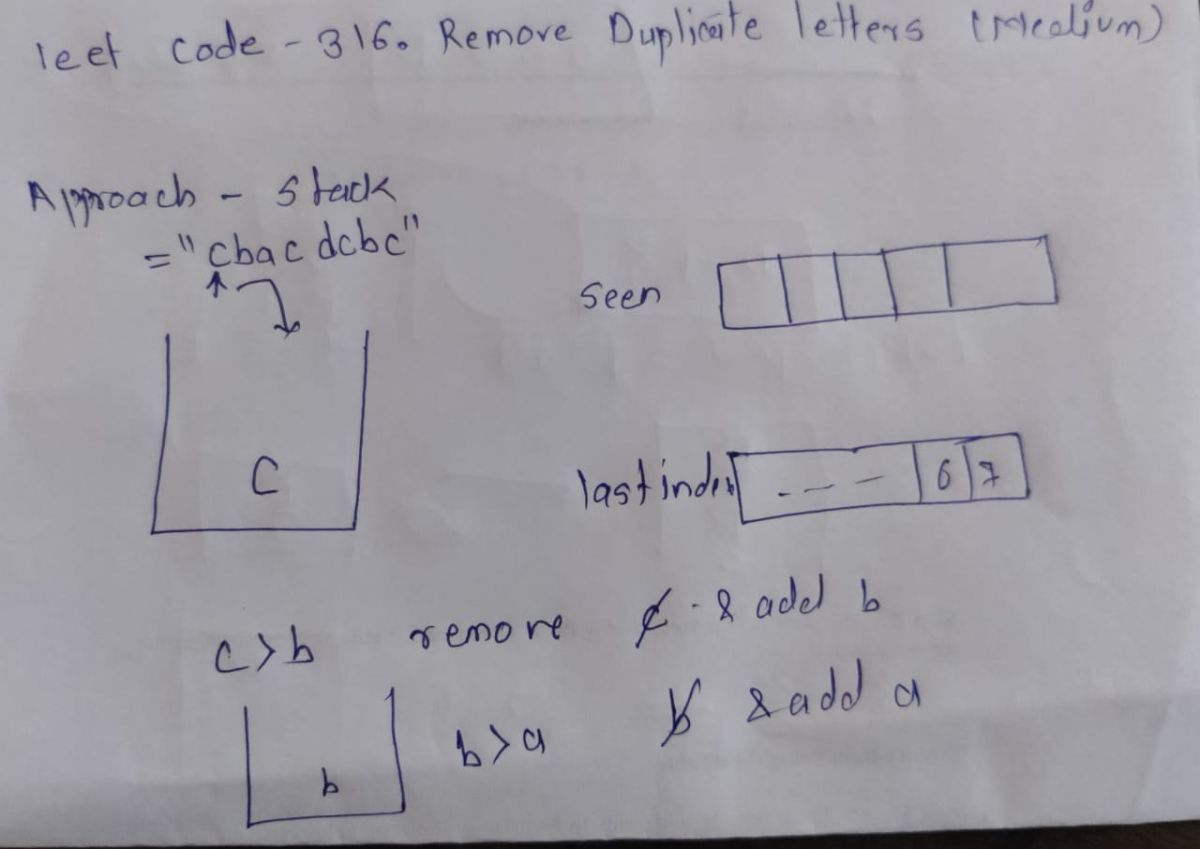 leet code - 316. Remove Duplicate letters (Medium)
Approach - stack
= "cbacdcbc"
seen
C
last index --- 6 7
c>b remove c & add b
b>a b & add a
b